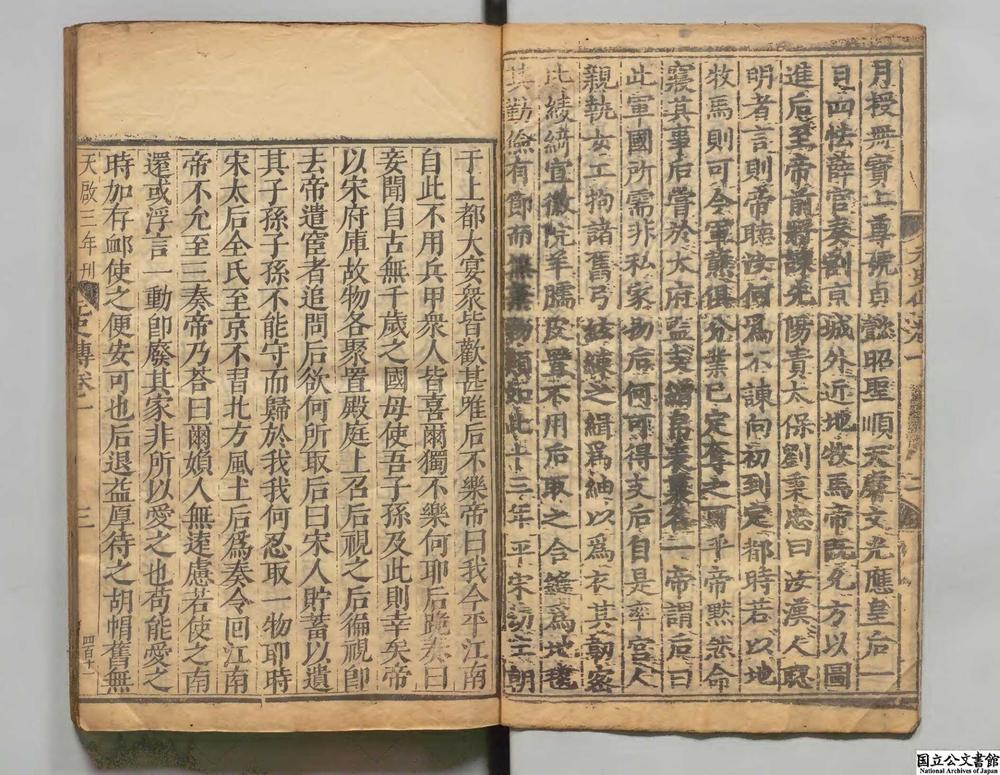 月授無寶上尊號貞懿昭聖順天睿文光應皇后一
日四怯薛官奏割京城外近地牧馬帝既允方以圖
進后至帝前將諫先陽責太保劉秉忠曰汝漢人聰
明者言則帝聽汝何爲不諫向初到定都時若以地
牧馬則可今軍蘸俱分業已定奪之可乎帝默然命
寢其事后嘗於太府監支繒帛表裏各一帝謂后曰
此軍國所需非私家物后何可得支后自是率宮人
親執女工拘諸舊弓絃練之緝爲紬以爲衣其韌密
比綾綺宣徽院羊臑皮置不用后取之合縫爲地毯
其勤儉有節而無棄物類如此十三年平宋幼主朝
元史 卷一 二
于上都大宴衆皆歡甚唯后不樂帝曰我今平江南
自此不用兵甲衆人皆喜爾獨不樂何耶后跪奏曰
妾聞自古無千歲之國毋使吾子孫及此則幸矣帝
以宋府庫故物各聚置殿庭上召后視之后徧視卽
去帝遣宦者追問后欲何所取后曰宋人貯蓄以遺
其子孫子孫不能守而歸於我我何忍取一物耶時
宋太后全氏至京不習北方風土后爲奏令回江南
帝不允至三奏帝乃荅曰爾婦人無遠慮若使之南
還或浮言一動卽廢其家非所以愛之也苟能愛之
時加存卹使之便安可也后退益厚待之胡帽舊無
天啟三年刊 史傳卷一 三 四百十
国立公文書館
National Archives of Japan